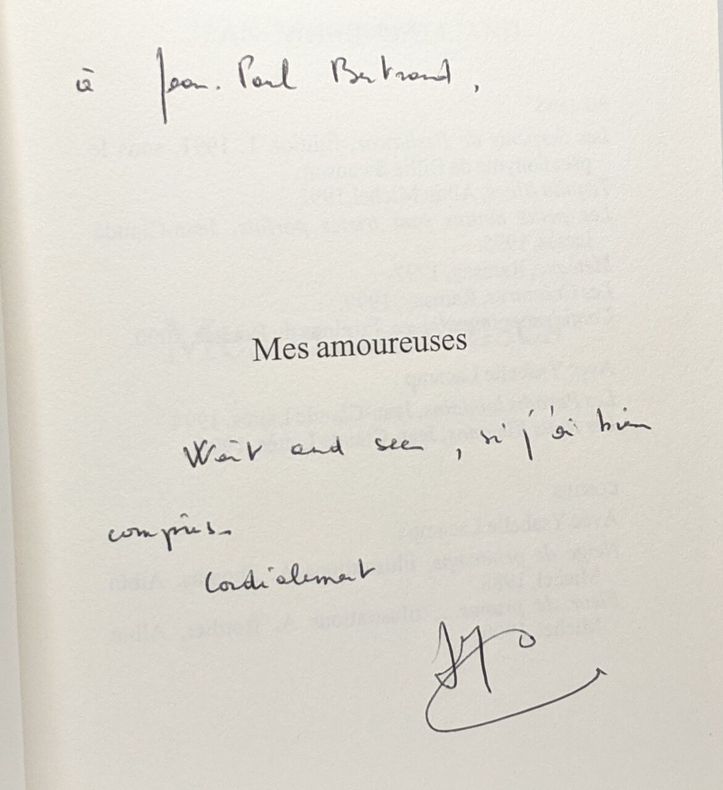 à Jean-Paul Bertrand,
Mes amoureuses
Wait and seen, si j'ai bien
compris.
Cordialement